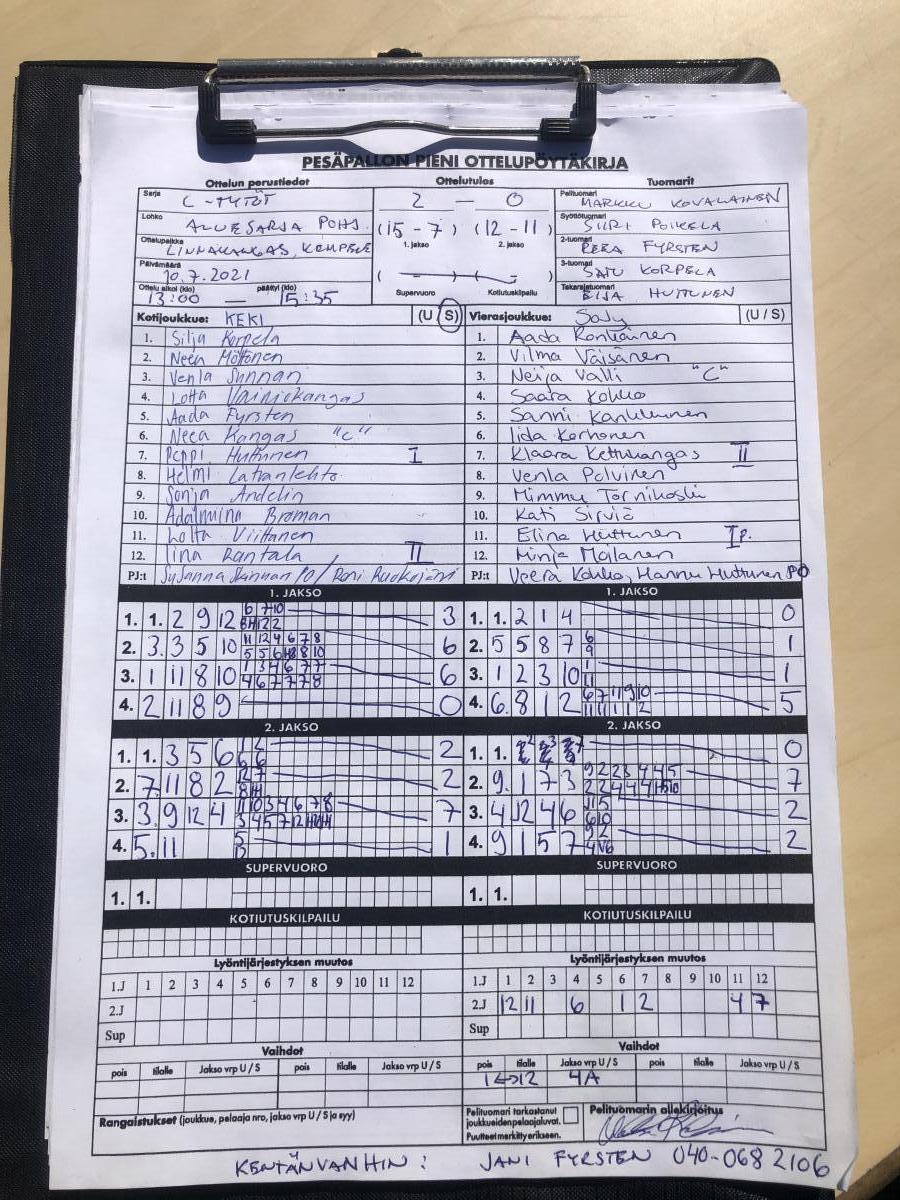 PESÄPALLON PIENI OTTELUPÖYTÄKIRJA
Ottelun perustiedot Ottelutulos Tuomarit
Sarja C-TYTÖT 2 — 0 Pelituomari MARKKU KOVALAINEN
Lohko ALUESARJA POHJ. (15 - 7) (12 - 11) Syöttötuomari SIIRI POIKELA
1. jakso 2. jakso
Ottelupaikka LINNAKANGAS, KEMPELE 2-tuomari REEA FYRSTEN
Päivämäärä 10.7.2021 ( — ) 3-tuomari SATU KORPELA
Ottelu alkoi (klo) 13:00 — päättyi (klo) 15:35 Supervuoro Kotiutuskilpailu Takarajatuomari EIJA HUTTUNEN
Kotijoukkue: KEKI (U S) Vierasjoukkue: SoJy (U / S)
1. Silja Korpela 1. Aada Rontiainen
2. Neea Möttönen 2. Vilma Väisänen
3. Venla Sunnan 3. Neija Valli "C"
4. Lotta Vainiokangas 4. Saara Kokko
5. Aada Fyrsten 5. Sanni Kankkunen
6. Neea Kangas "C" 6. Iida Korhonen
7. Peppi Huttunen I 7. Klaara Kettukangas II
8. Helmi Latvanlehto 8. Venla Polvinen
9. Sonja Andelin 9. Mimmu Tornikoski
10. Adalmiina Broman 10. Kati Sirviö
11. Lotta Viittanen 11. Elina Huttunen I p.
12. Iina Rantala II 12. Minja Moilanen
PJ:t Susanna Sunnan PO / Roni Ruokojärvi PJ:t Veera Kokko, Hannu Huttunen PO
1. JAKSO 1. JAKSO
1. 1. 2 9 12 6 7 10 3 1. 1. 2 1 4 0
2. 3. 3 5 10 11 12 4 6 7 8 6 2. 5 5 8 7 6 9 1
3. 1 11 8 10 1 3 4 6 7 7 4 6 7 7 7 8 6 3. 1 2 3 10 1 11 1
4. 2 11 8 9 0 4. 6. 8 1 2 6 7 11 9 10 11 11 1 1 2 5
2. JAKSO 2. JAKSO
1. 1. 3 5 6 1 2 6 6 2 1. 1. 0
2. 7. 11 8 2 12 7 2 2. 9. 1 7 3 9 2 2 3 4 4 5 7
3. 3. 9 12 4 11 10 3 4 6 7 8 7 3. 4 12 4 6 11 5 6 10 2
4. 5. 11 5 12 1 4. 9 1 5 7 9 2 2
SUPERVUORO SUPERVUORO
1. 1. 1. 1.
KOTIUTUSKILPAILU KOTIUTUSKILPAILU
Lyöntijärjestyksen muutos Lyöntijärjestyksen muutos
1.J 1 2 3 4 5 6 7 8 9 10 11 12 1.J 1 2 3 4 5 6 7 8 9 10 11 12
2.J 2.J 12 11 6 1 2 4 7
Sup Sup
Vaihdot Vaihdot
pois tilalle Jakso vrp U / S pois tilalle Jakso vrp U / S pois tilalle Jakso vrp U / S pois tilalle Jakso vrp U / S
1 ↔ 12 4A
Rangaistukset (joukkue, pelaaja nro, jakso vrp U / S ja syy) Pelituomari tarkastanut joukkueiden pelaajaluvat. Puutteet merkitty erikseen. Pelituomarin allekirjoitus
KENTÄNVANHIN: JANI FYRSTEN 040-068 2106